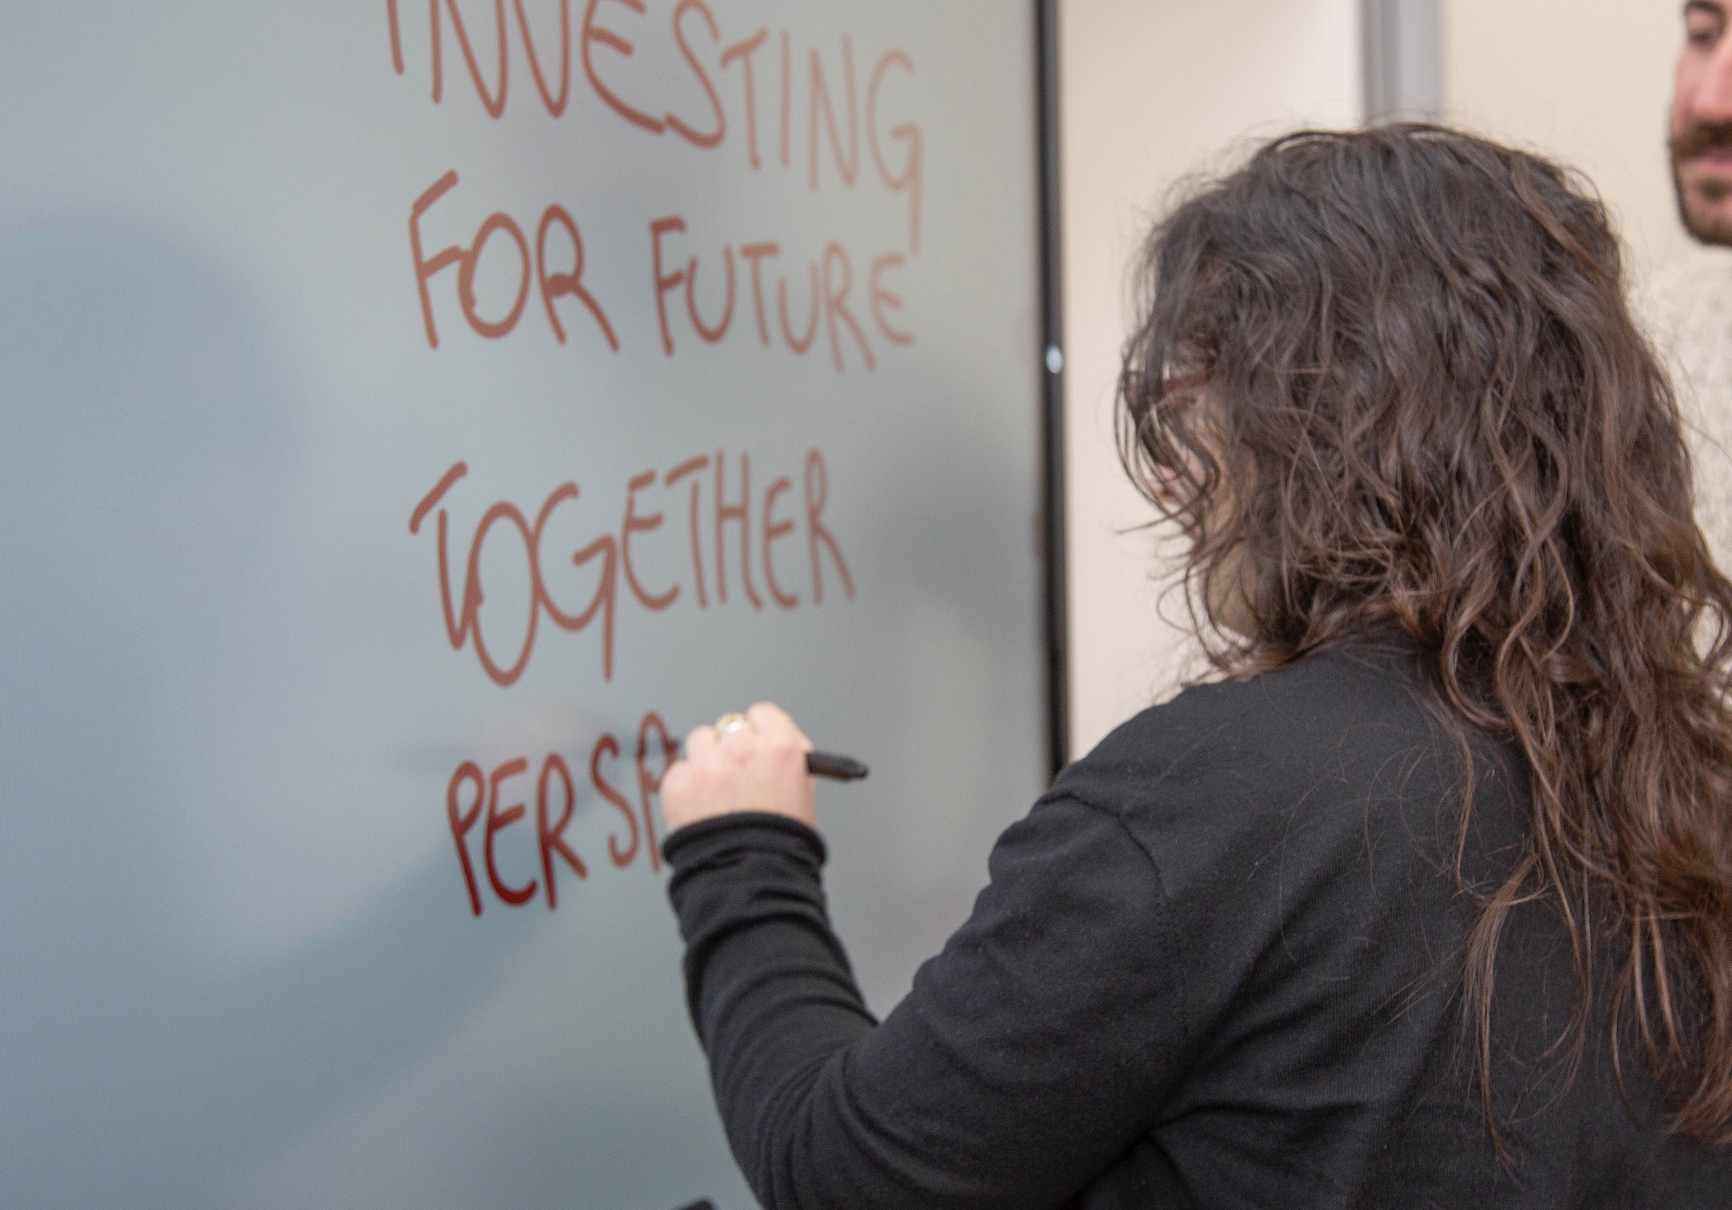 INVESTING
FOR FUTURE
TOGETHER
PERSP